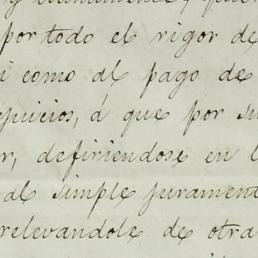 por todo el rigor de
i como al pago de
juicios, á que por su
r, defiriendose en l
al simple jurament
relevandole de otra